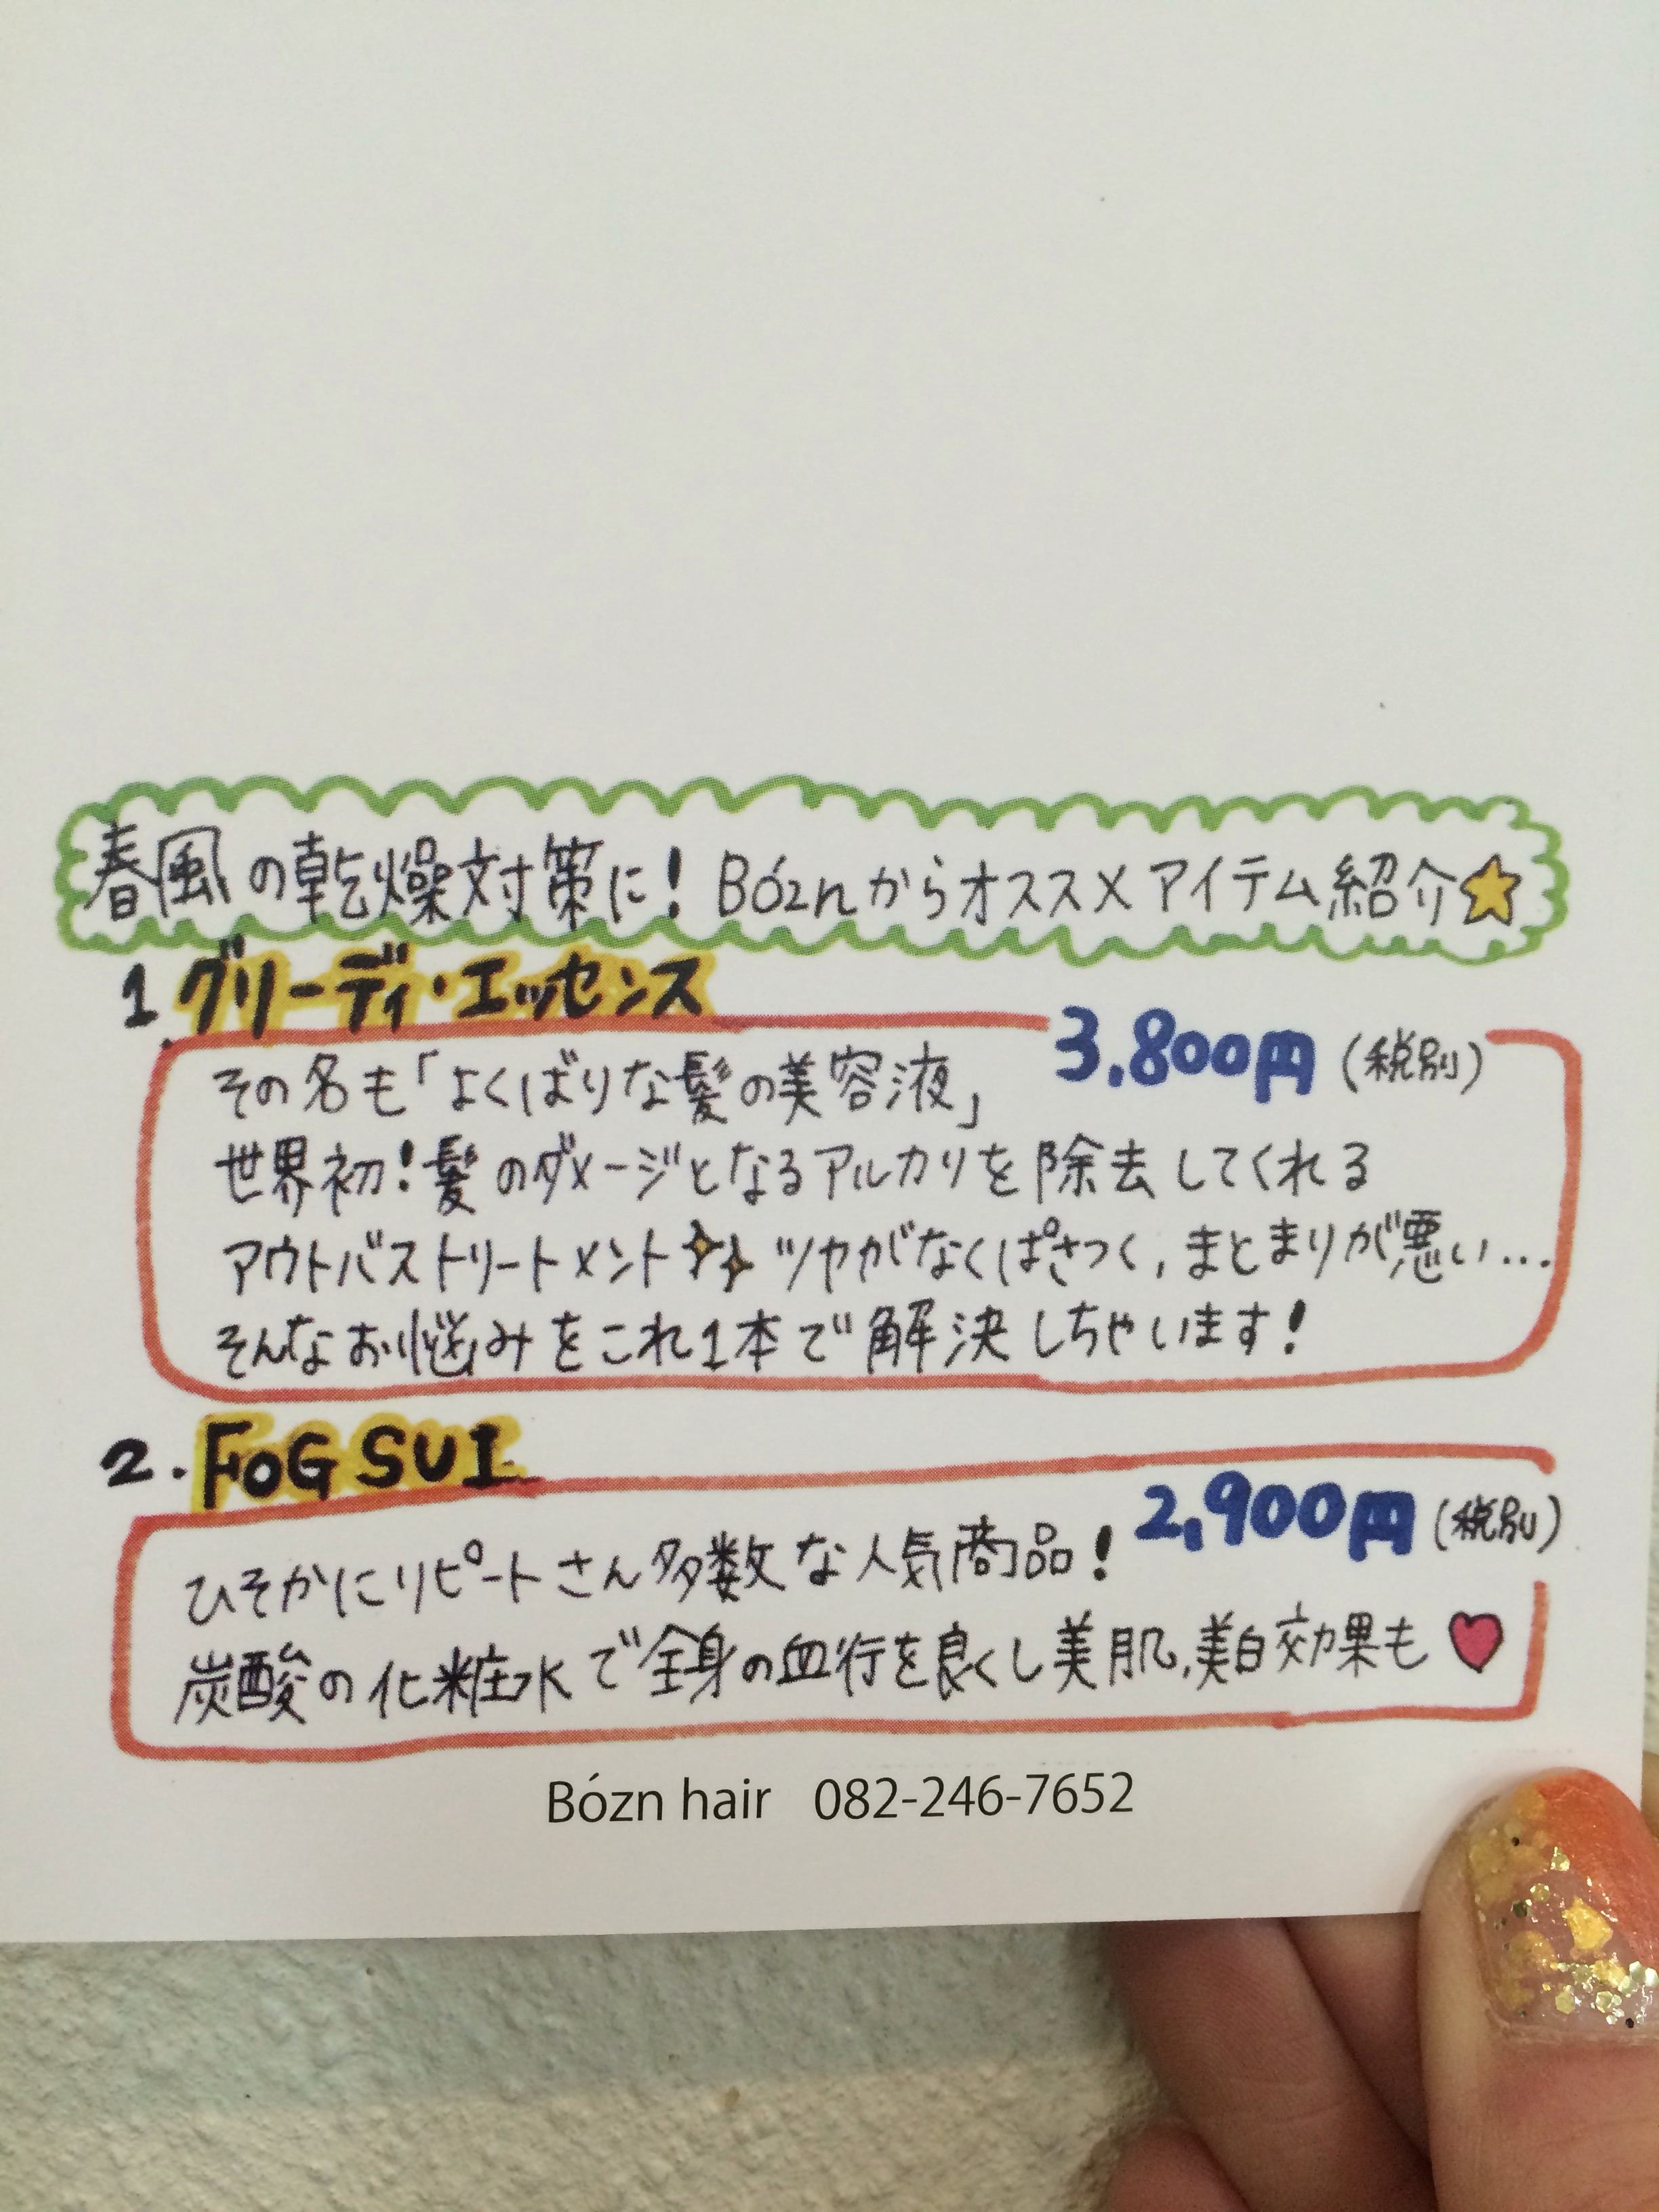 春風の乾燥対策に！Bóznからオススメアイテム紹介
1 グリーディ・エッセンス
3,800円(税別)
その名も「よくばりな髪の美容液」
世界初！髪のダメージとなるアルカリを除去してくれる
アウトバストリートメント ツヤがなくぱさつく,まとまりが悪い...
そんなお悩みをこれ1本で解決しちゃいます！
2.FOG SUI
2,900円(税別)
ひそかにリピートさん多数な人気商品！
炭酸の化粧水で全身の血行を良くし美肌,美白効果も
Bózn hair 082-246-7652